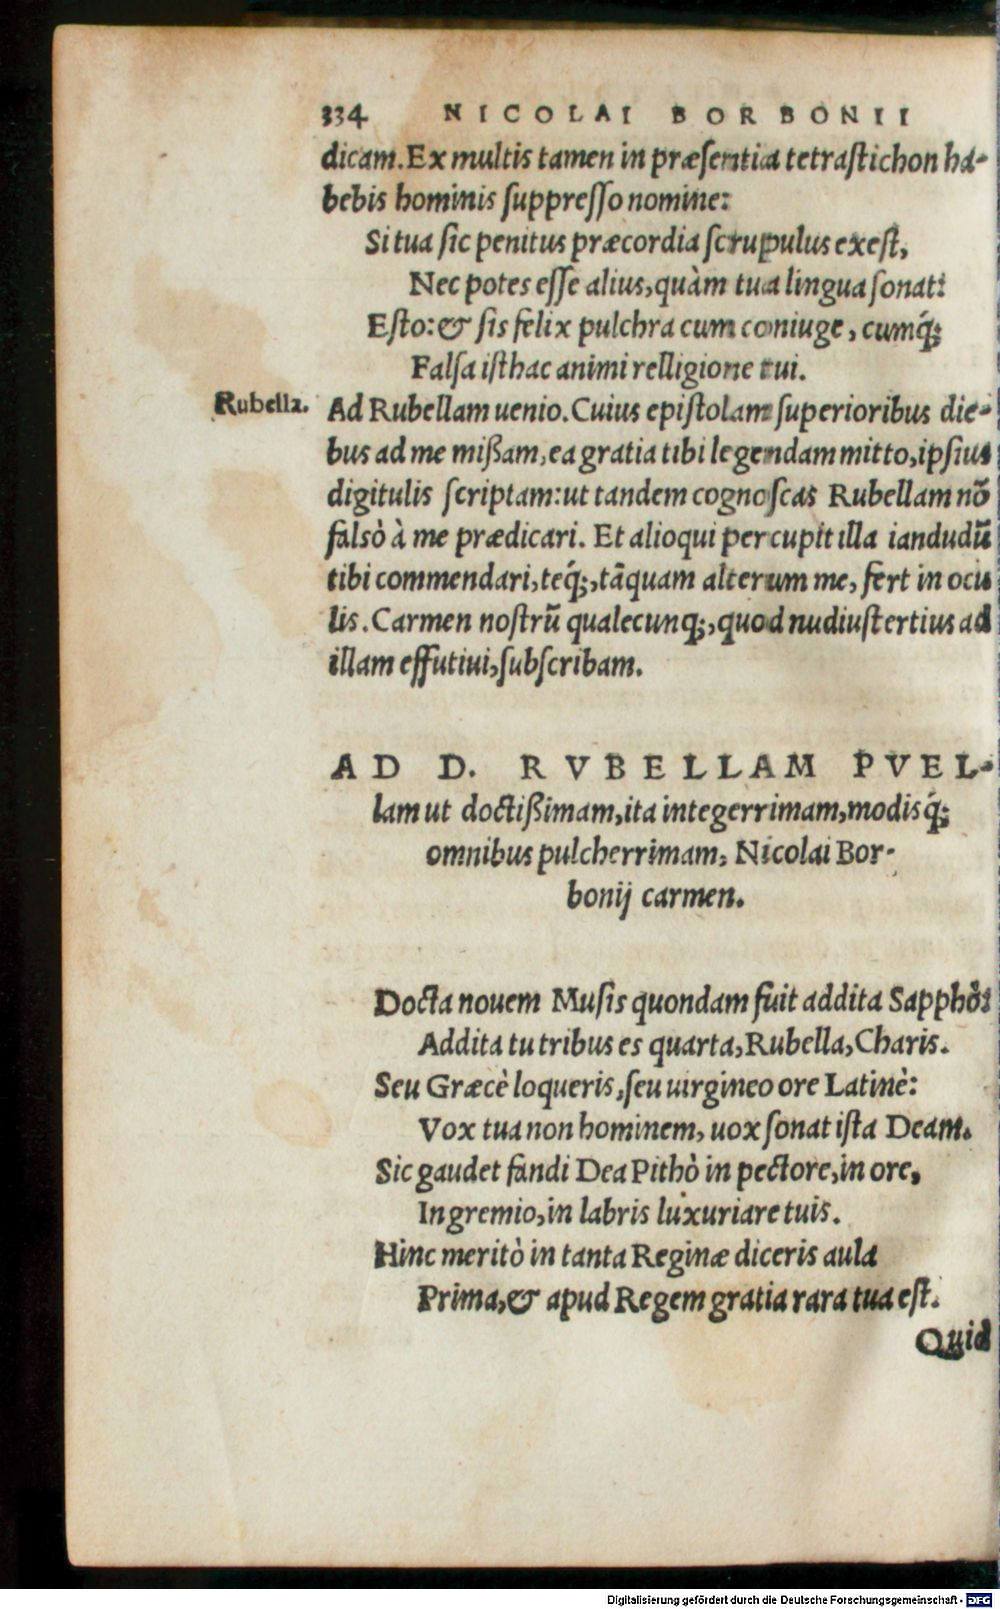 334 NICOLAI BORBONII
dicam. Ex multis tamen in præsentia tetrastichon ha-
bebis hominis suppresso nomine:
Si tua sic penitus præcordia scrupulus exest,
Nec potes esse alius, quàm tua lingua sonat:
Esto: & sis felix pulchra cum coniuge, cumq́;
Falsa isthac animi relligione tui.
Rubella. Ad Rubellam uenio. Cuius epistolam superioribus die-
bus ad me mißam, ea gratia tibi legendam mitto, ipsius
digitulis scriptam: ut tandem cognoscas Rubellam nō
falsò à me prædicari. Et alioqui percupit illa iandudū
tibi commendari, teq́;, tāquam alterum me, fert in ocu
lis. Carmen nostrū qualecunq;, quod nudiustertius ad
illam effutiui, subscribam.
AD D. RVBELLAM PVEL-
lam ut doctißimam, ita integerrimam, modisq́;
omnibus pulcherrimam, Nicolai Bor-
bonij carmen.
Docta nouem Musis quondam fuit addita Sapphò:
Addita tu tribus es quarta, Rubella, Charis.
Seu Græcè loqueris, seu uirgineo ore Latinè:
Vox tua non hominem, uox sonat ista Deam.
Sic gaudet fandi Dea Pithò in pectore, in ore,
In gremio, in labris luxuriare tuis.
Hinc meritò in tanta Reginæ diceris aula
Prima, & apud Regem gratia rara tua est.
Quid
Digitalisierung gefördert durch die Deutsche Forschungsgemeinschaft - DFG